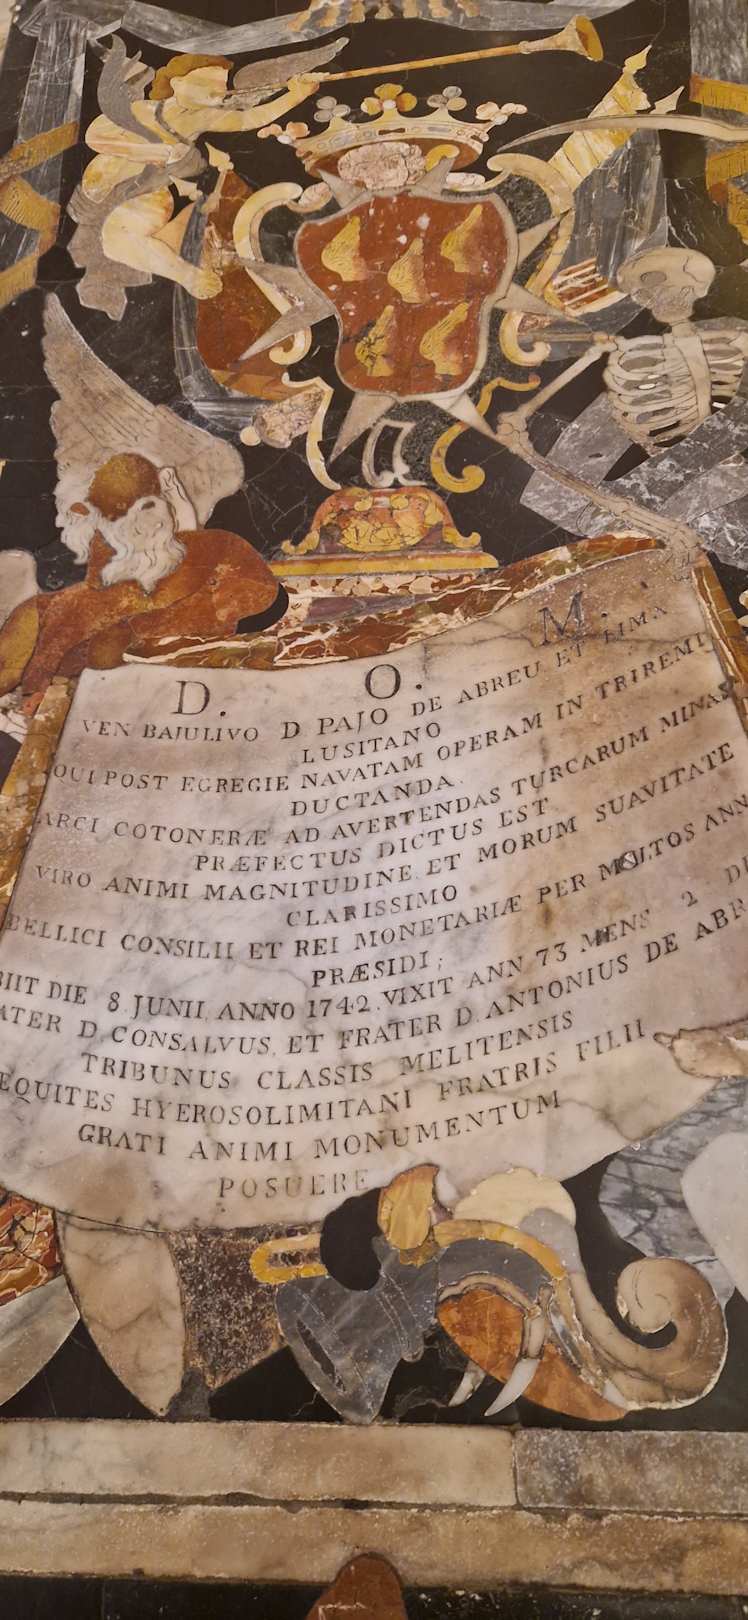 D. O. M.
VEN BAJULIVO D PAJO DE ABREU ET LIMA
LUSITANO
QUI POST EGREGIE NAVATAM OPERAM IN TRIREMI
DUCTANDA.
ARCI COTONERÆ AD AVERTENDAS TURCARUM MINAS
PRÆFECTUS DICTUS EST.
VIRO ANIMI MAGNITUDINE ET MORUM SUAVITATE
CLARISSIMO
BELLICI CONSILII ET REI MONETARIÆ PER MULTOS ANN
PRÆSIDI;
BIIT DIE 8 JUNII ANNO 1742. VIXIT ANN 73 MENS 2 DI
ATER D. CONSALVUS, ET FRATER D. ANTONIUS DE ABR
TRIBUNUS CLASSIS MELITENSIS
EQUITES HYEROSOLIMITANI FRATRIS FILII
GRATI ANIMI MONUMENTUM
POSUERE